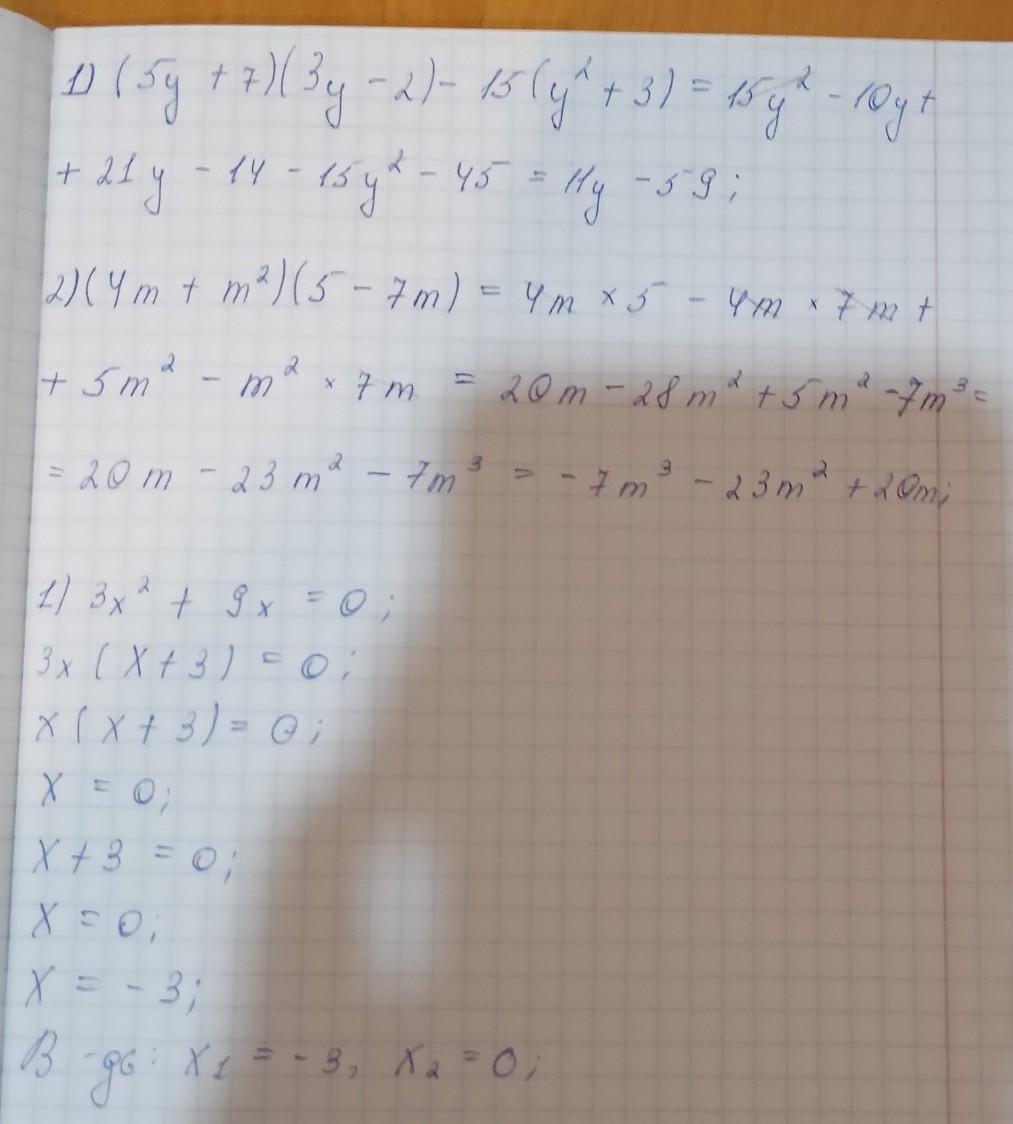 1) (5y + 7)(3y - 2) - 15(y² + 3) = 15y² - 10y +
+ 21y - 14 - 15y² - 45 = 11y - 59;
2) (4m + m²)(5 - 7m) = 4m × 5 - 4m × 7m +
+ 5m² - m² × 7m = 20m - 28m² + 5m² - 7m³ =
= 20m - 23m² - 7m³ = - 7m³ - 23m² + 20m;
1) 3x² + 9x = 0;
3x (x + 3) = 0;
x (x + 3) = 0;
x = 0;
x + 3 = 0;
x = 0;
x = - 3;
В-дь: x₁ = - 3, x₂ = 0;